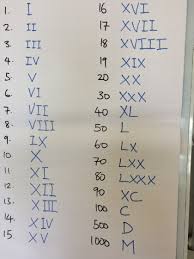 1. I
2. II
3. III
4. IV
5. V
6. VI
7. VII
8. VIII
9. IX
10. X
11. XI
12. XII
13. XIII
14. XIV
15. XV
16 XVI
17 XVII
18 XVIII
19 XIX
20 XX
30 XXX
40 XL
50 L
60 LX
70 LXX
80 LXXX
90 XC
100 C
500 D
1000 M